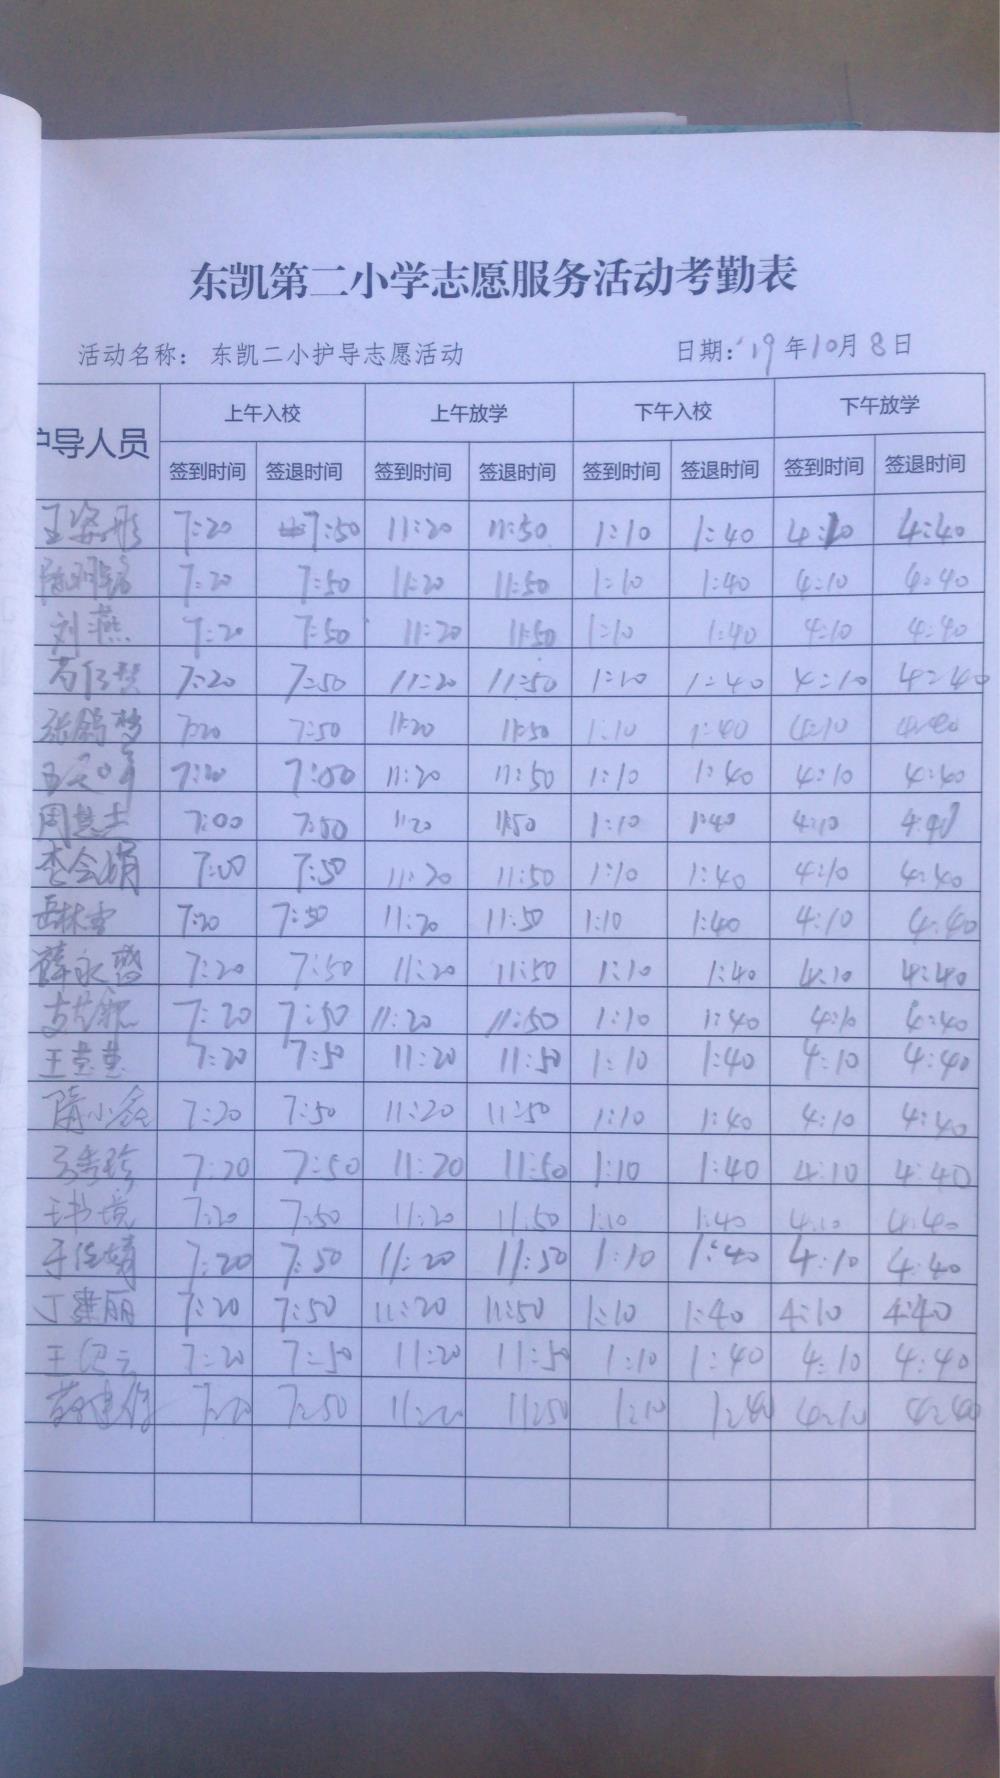 东凯第二小学志愿服务活动考勤表
活动名称： 东凯二小护导志愿活动 日期：'19年10月8日
护导人员 上午入校 上午放学 下午入校 下午放学
签到时间 签退时间 签到时间 签退时间 签到时间 签退时间 签到时间 签退时间
王姿彤 7:20 7:50 11:20 11:50 1:10 1:40 4:10 4:40
7:20 7:50 11:20 11:50 1:10 1:40 4:10 4:40
刘燕 7:20 7:50 11:20 11:50 1:10 1:40 4:10 4:40
7:20 7:50 11:20 11:50 1:10 1:40 4:10 4:40
张鸽梦 7:20 7:50 11:20 11:50 1:10 1:40 4:10 4:40
7:20 7:50 11:20 11:50 1:10 1:40 4:10 4:40
周慧杰 7:00 7:50 11:20 11:50 1:10 1:40 4:10
李会娟 7:00 7:50 11:20 11:50 1:10 1:40 4:10 4:40
岳林雪 7:20 7:50 11:20 11:50 1:10 1:40 4:10 4:40
薛永慧 7:20 7:50 11:20 11:50 1:10 1:40 4:10 4:40
7:20 7:50 11:20 11:50 1:10 1:40 4:10 4:40
王慧慧 7:20 7:50 11:20 11:50 1:10 1:40 4:10 4:40
隋小 7:20 7:50 11:20 11:50 1:10 1:40 4:10 4:40
7:20 7:50 11:20 11:50 1:10 1:40 4:10 4:40
王书境 7:20 7:50 11:20 11:50 1:10 1:40 4:10 4:40
于佳婧 7:20 7:50 11:20 11:50 1:10 1:40 4:10 4:40
丁建丽 7:20 7:50 11:20 11:50 1:10 1:40 4:10 4:40
王 7:20 7:50 11:20 11:50 1:10 1:40 4:10 4:40
7:20 7:50 11:20 11:50 1:10 1:40 4:10 4:40